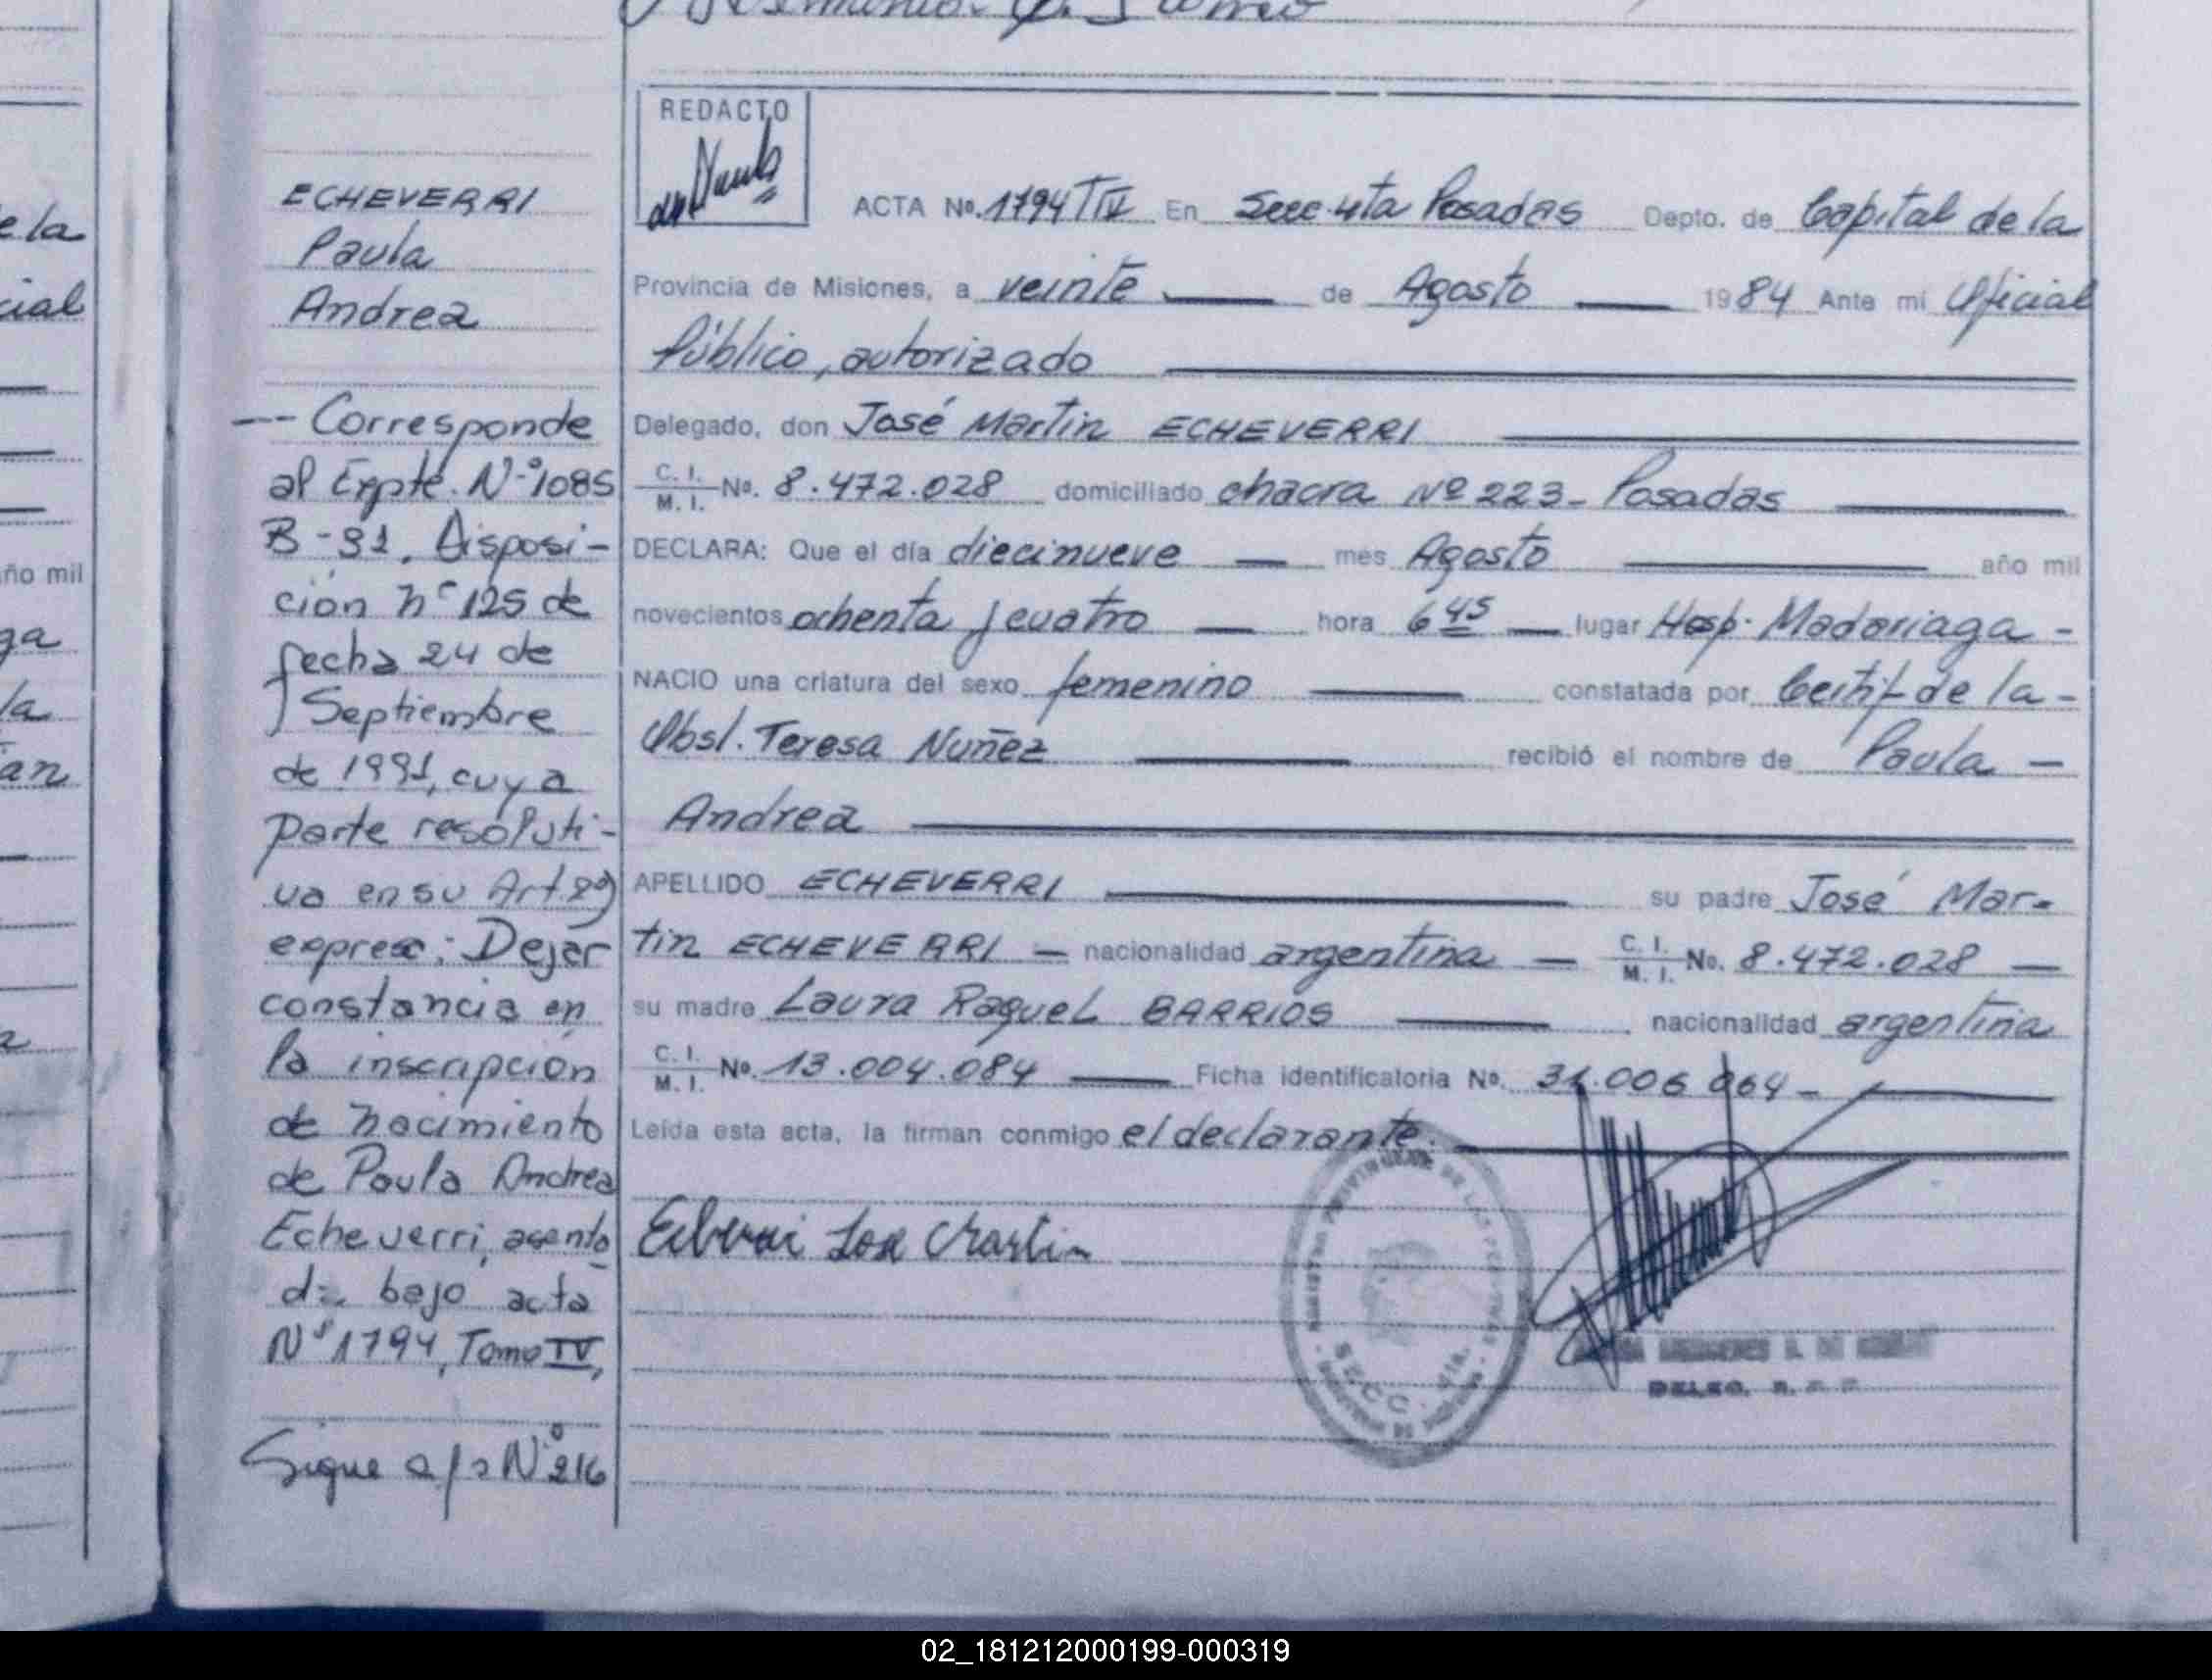 REDACTO
ACTA No. 1794 TIV En Secc. 4ta Posadas Depto. de Capital de la
Provincia de Misiones, a veinte de Agosto 1984 Ante mi Oficial
Público, autorizado
Delegado, don José Martin ECHEVERRI
C. I. M. I. No. 8.472.028 domiciliado chacra Nº 223- Posadas
DECLARA: Que el día diecinueve mes Agosto año mil
novecientos ochenta y cuatro hora 6 45 lugar Hosp. Madariaga -
NACIO una criatura del sexo femenino constatada por Certif de la -
Obst. Teresa Nuñez recibió el nombre de Paula
Andrea
APELLIDO ECHEVERRI su padre José Mar-
tin ECHEVERRI nacionalidad argentina C. I. M. I. No. 8.472.028
su madre Laura Raquel BARRIOS nacionalidad argentina
C. I. M. I. No. 13.004.084 Ficha identificatoria No.
Leída esta acta, la firman conmigo el declarante.
Echeverri Jose Martin
SECC. 4ta.
ECHEVERRI
Paula
Andrea
-- Corresponde
al Expte. Nº 1085
B-91, Disposi-
ción nº 125 de
fecha 24 de
Septiembre
de 1991, cuya
parte resoluti-
va en su Art. 2º)
expresa: Dejar
constancia en
la inscripción
de nacimiento
de Paula Andrea
Echeverri, asenta
da bajo acta
Nº 1794, Tomo IV,
Sigue a/s Nº 216
e la
cial
ño mil
ga
la
an
a
02_181212000199-000319